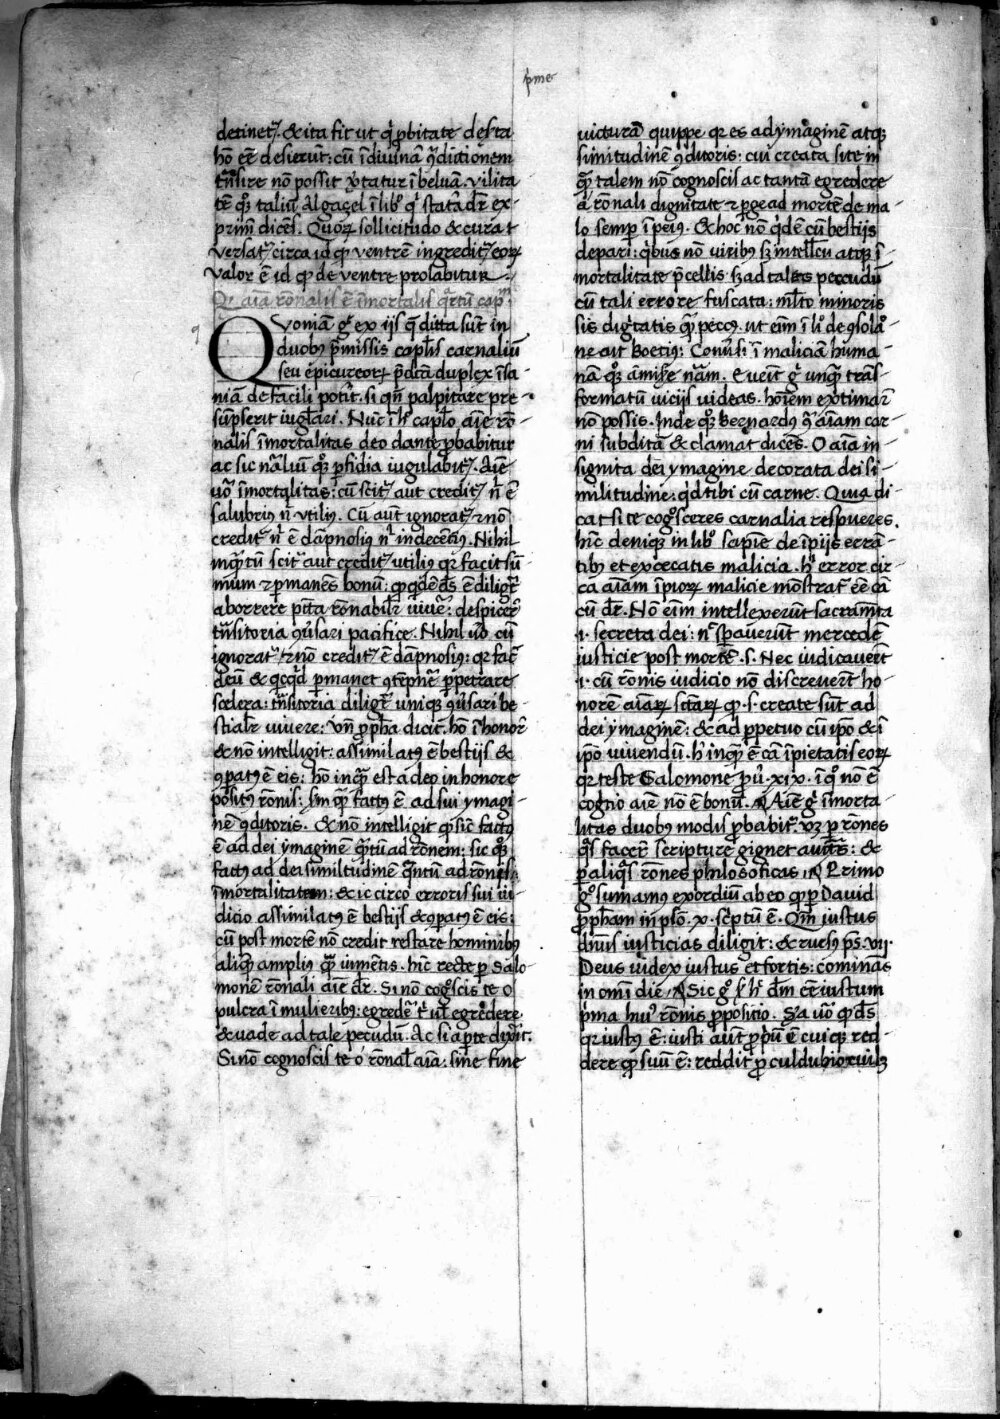 pme
detinet᷒. & ita fit ut q̇ ꝓbitate deſta
hō eē deſierūt: cū ī diuinā ꝯditionem
trāſire nō poſſit ūtatur ī beluā. vilita
tē qͦꝫ taliū Algaçel ī libͦ q̇ ſtatā dr̄ ex-
primit dicēs. Quoꝝ ſollicitudo & cura
verſat᷒ circa id qꝫ ventrē ingredit᷒ eoꝝ
valor ē id qꝫ de ventre prolabitur.
Qꝫ aīa rōnalis ē īmortalis q̄rtū capᵐ
q
Quoniā gͦ ex ijs q̄ dicta ſūt in
duobꝰ p̄miſſis caplīs carnaliū
ſeu epicureoꝝ p̄dc̄ā duplex īſa
niā de facili potit. ſi qn̄ palpitare pre-
ſūpſerit iugl̄ari. Nūc ī hͦ caplͦo aīe rō-
nalis īmortalitas deo dante ꝓbabitur
ac ſic nāliū qͦꝫ ꝑfidia iugulabit᷒. Aīe
uͦ īmortalitas: cū ſcit᷒ aut credit᷒ nͥ ē
ſalubriꝰ nͥ utiliꝰ. Cū aūt ignorat᷒ & nō
credit᷒ nͥ ē dāpnoſiꝰ nͥ indecētiꝰ. Nihil
inqͣtū ſcit᷒ aut credit᷒ utiliꝰ qꝛ facit ſū-
mum & ꝑmanēs bonū: qꝫ qͥdē dꝰ ē diligr̄
aborrere pctā rōnabilr̄ viuē: deſpicer̄
trāſitoria ꝯuſari pacifice. Nihil uͦ cū
ignorat᷒ & nō credit᷒ ē dāpnoſiꝰ: qꝛ facit
deū & qͥcqͥd ꝑmanet ꝯtēpnē ꝑpetrare
ſcelera: trāſitoria diligr̄ uniqꝫ ꝯuſari be-
ſtialr̄ viuere: vn̄ ꝓpha dicit. hō ī honor̄
& nō intelligit. aſſimilatꝰ ē beſtijs &
ꝯpatꝰ ē eis: hō inqͣ eſt adeo in honore
poſitꝰ rōnis: ſm̄ qͣ factꝰ ē. ad ſui ymagi-
nē ꝯditoris. & nō intelligit qꝫ ſic factꝰ
ē ad dei ymaginē qͣtū ad rōnem: ſic qͦꝫ
factꝰ ad dei ſimilitudinē qͣntū ad rōnis
īmortalitatem: & ic circo erroris ſui iu-
dicio aſſimilatꝰ ē beſtijs & ꝯpatꝰ ē eis:
cū poſt mortē nō credit reſtare hominibꝰ
aliqͥd ampliꝰ qͣ iumētis. hīc recte ꝑ Salo
monē rōnali aīe dr̄. Si nō cogͦſcis te o
pulcra ī mulieribꝰ: egredē uel egredere
& vade ad tale pecudū. Ac ſi aperte dixit.
Si nō cognoſcis te o rōnalˢ aīa. ſine fine
victurā quippe qꝛ es ad ymaginē atqꝫ
ſimitudinē ꝯditoris: cui creata ſit e m
qͣ talem nō cognoſcis ac tantā egredere
a rōnali dignitate & ꝑge ad mortē de ma
lo ſemꝑ ī peiꝰ. & hoc nō qͥdē cū beſtijs
depari: qͥbus nō viribꝰ ſꝫ intellcū atqꝫ ī
mortalitate p̄cellis ſꝫ ad tales peccudū
cū tali errore fuſcata: mltͦo minoris
ſis dignitatis qͣ pecꝰ. ut eīm ī lͥo de ꝯſolaͦ
ne ait Boetiꝰ: Conuſi ī maliciā huma-
nā qͦꝫ amiſiſſe nām. Euēit gͦ ut quē trāſ-
formatū vicijs videas. hoīem extimar̄
nō poſſis. Inde qͦꝫ Bernardꝰ qͣ aīam car-
ni ſubditā & clamat dicēs. O aīa in-
ſignita dei ymagine decorata dei ſi-
militudine: qͥd tibi cū carne. Quia di
cat ſi te cogͦſceres carnalia reſpueres.
hīc deniqꝫ in libͦ ſapīe de īpijs errā-
tibꝰ et excecatis malicia. hͥ error cir-
ca aīam īpioꝝ malicie mōſtrat᷒ eē cā
cū dr̄. Nō eīm intellexerūt ſacramēta
.i. ſecreta dei: nͥ ſperauerūt mercedē
iuſticie poſt mortē .ſ. Nec iudicauerūt
.i. cū rōnis iudicio nō diſcreuerūt ho-
norē aīarꝫ ſctārꝫ qꝫ .ſ. create ſūt ad
dei ymaginē: & ad ꝑpetuo cū ipͦo & ī
ipͦo viuendū. hͥ inqͣ ē cā īpietatis eoꝝ
qꝛ teſte Salomone ꝓuͥ. xix. īqͦ nō ē
cogtio aīe nō ē bonū. Aīe gͦ īmorta-
litas duobꝰ modis ꝓbabit᷒. vꝫ ꝑ rōnes
qͣs facer̄ ſcripture gignet auͥtas: &
ꝑ aliqͣs rōnes philoſoficas. Primo
gͦ ſumamꝰ exordiū ab eo qꝫ ꝑ David
ꝓpham in pſͦ. x. ſcͥptū ē. Qm̄ iuſtus
dn̄s iuſticias diligit: & rurſꝰ pͣs. vij.
Deus iudex iuſtus et fortis: cominās
in omī die. Sic gͦ ſit hͥ dm̄ eē iuſtum
pma huiꝰ rōnis ꝓpoſitio. Sa uͦ qꝫ dꝰ
qꝛ iuſtꝰ ē: iuſti aūt ꝓpͥū ē cuiqꝫ red-
dere qꝫ ſuū ē: reddit ꝓcul dubio cuilꝫ